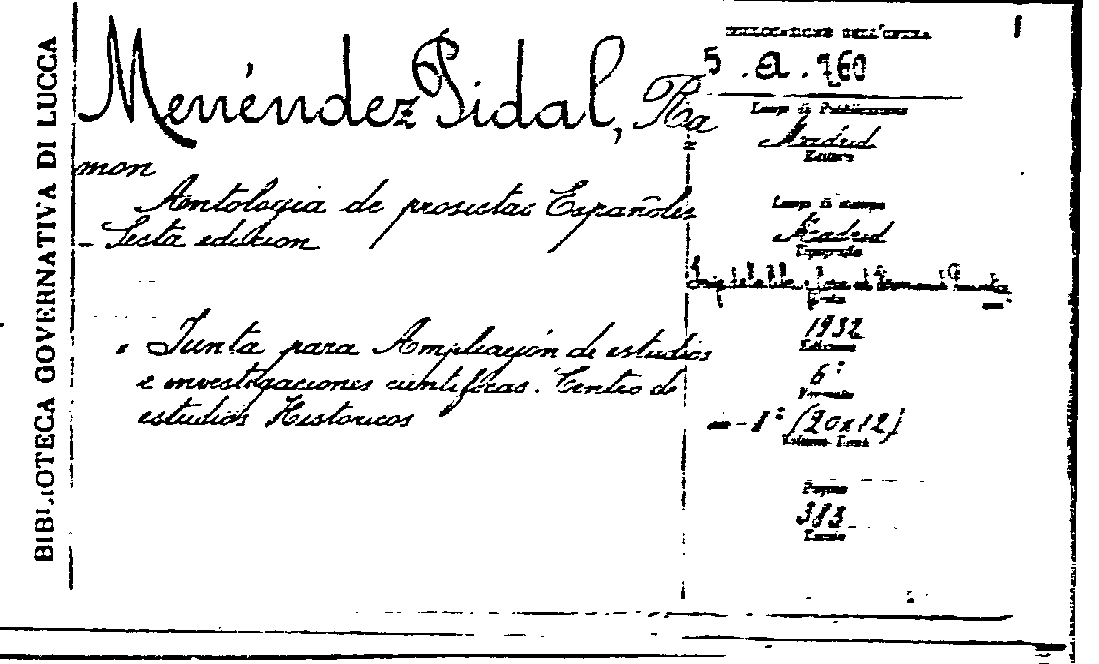 BIBLIOTECA GOVERNATIVA DI LUCCA
Menéndez Pidal, Ra
mon
Antologia de prosistas Españoles
- Sesta edicion
Junta para Ampliación de estudios
e investigaciones cientificas. Centro de
estudios Historicos
COLLOCAZIONE DELL'OPERA
5 . a . 160
Luogo di Pubblicazione
Madrid
Editore
Luogo di stampa
Madrid
Tipografia
1932
Edizione
6ª
Formato
8° (20x12)
Pagine
383